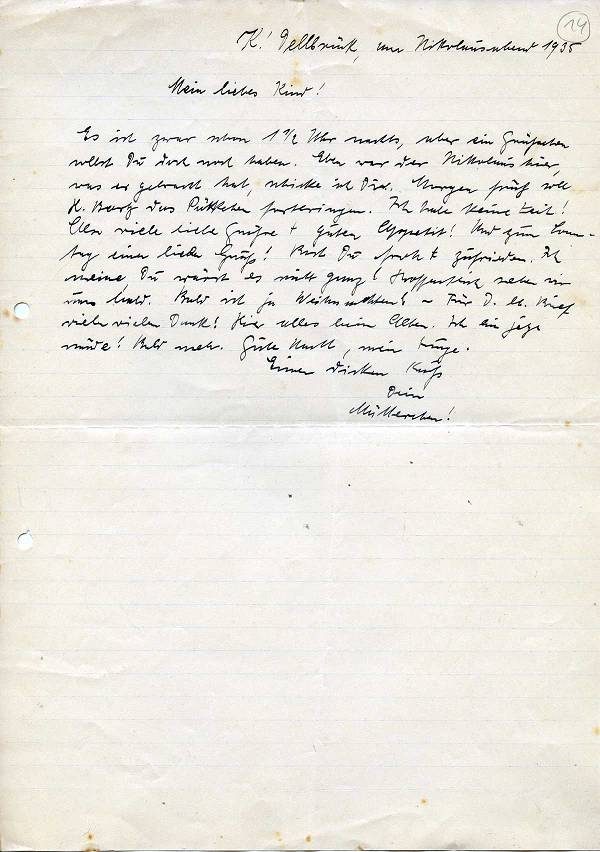 14
K! Dellbrück, am Nikolausabend 1935
Mein liebes Kind!
Es ist zwar schon 1 1/2 Uhr nachts, aber ein Grüßchen
sollst Du doch noch haben. Eben war der Nikolaus hier,
was er gebracht hat, schicke ich Dir. Morgen früh soll
H. das Päckchen fortbringen. Ich habe keine Zeit!
Also viele liebe Grüße + guten Appetit! Und zum Sonn-
tag einen lieben Gruß! Bist Du froh + zufrieden. Ich
meine, Du wärst es nicht ganz! Hoffentlich sehen wir
uns bald. Bald ist ja Weihnachten! – Für D. lb. Brief
vielen vielen Dank! Hier alles beim Alten. Ich bin
müde! Bald mehr. Gute Nacht, mein Junge.
Einen dicken Kuß
Dein
Mütterchen!